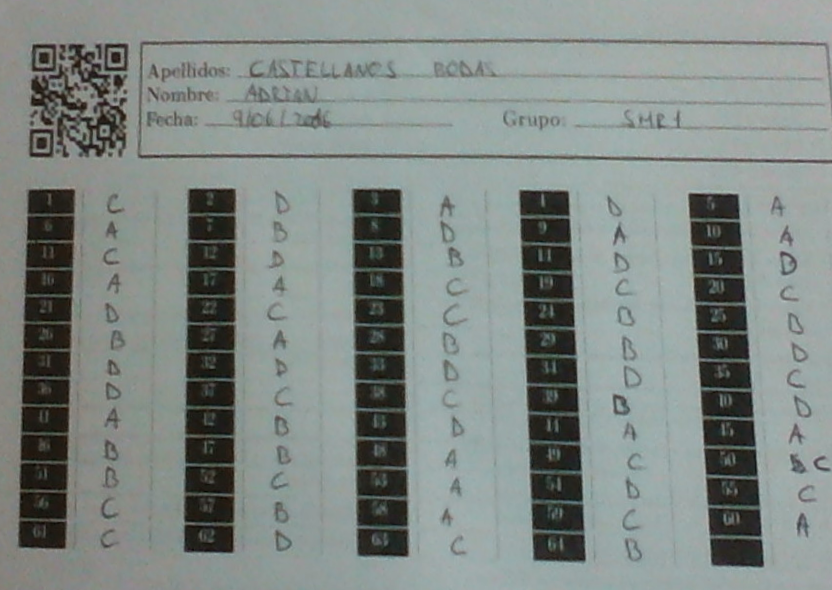 Apellidos: CASTELLANOS BODAS
Nombre: ADRIAN
Fecha: 9/06/2016 Grupo: SMR1
1 C 2 D 3 A 4 D 5 A
6 A 7 B 8 D 9 A 10 A
11 C 12 D 13 B 14 D 15 D
16 A 17 A 18 C 19 C 20 C
21 D 22 C 23 C 24 B 25 B
26 B 27 A 28 B 29 B 30 D
31 D 32 D 33 D 34 D 35 C
36 D 37 C 38 C 39 B 40 D
41 A 42 B 43 D 44 A 45 A
46 B 47 B 48 A 49 C 50 C
51 B 52 C 53 A 54 D 55 C
56 C 57 B 58 A 59 C 60 A
61 C 62 D 63 C 64 B